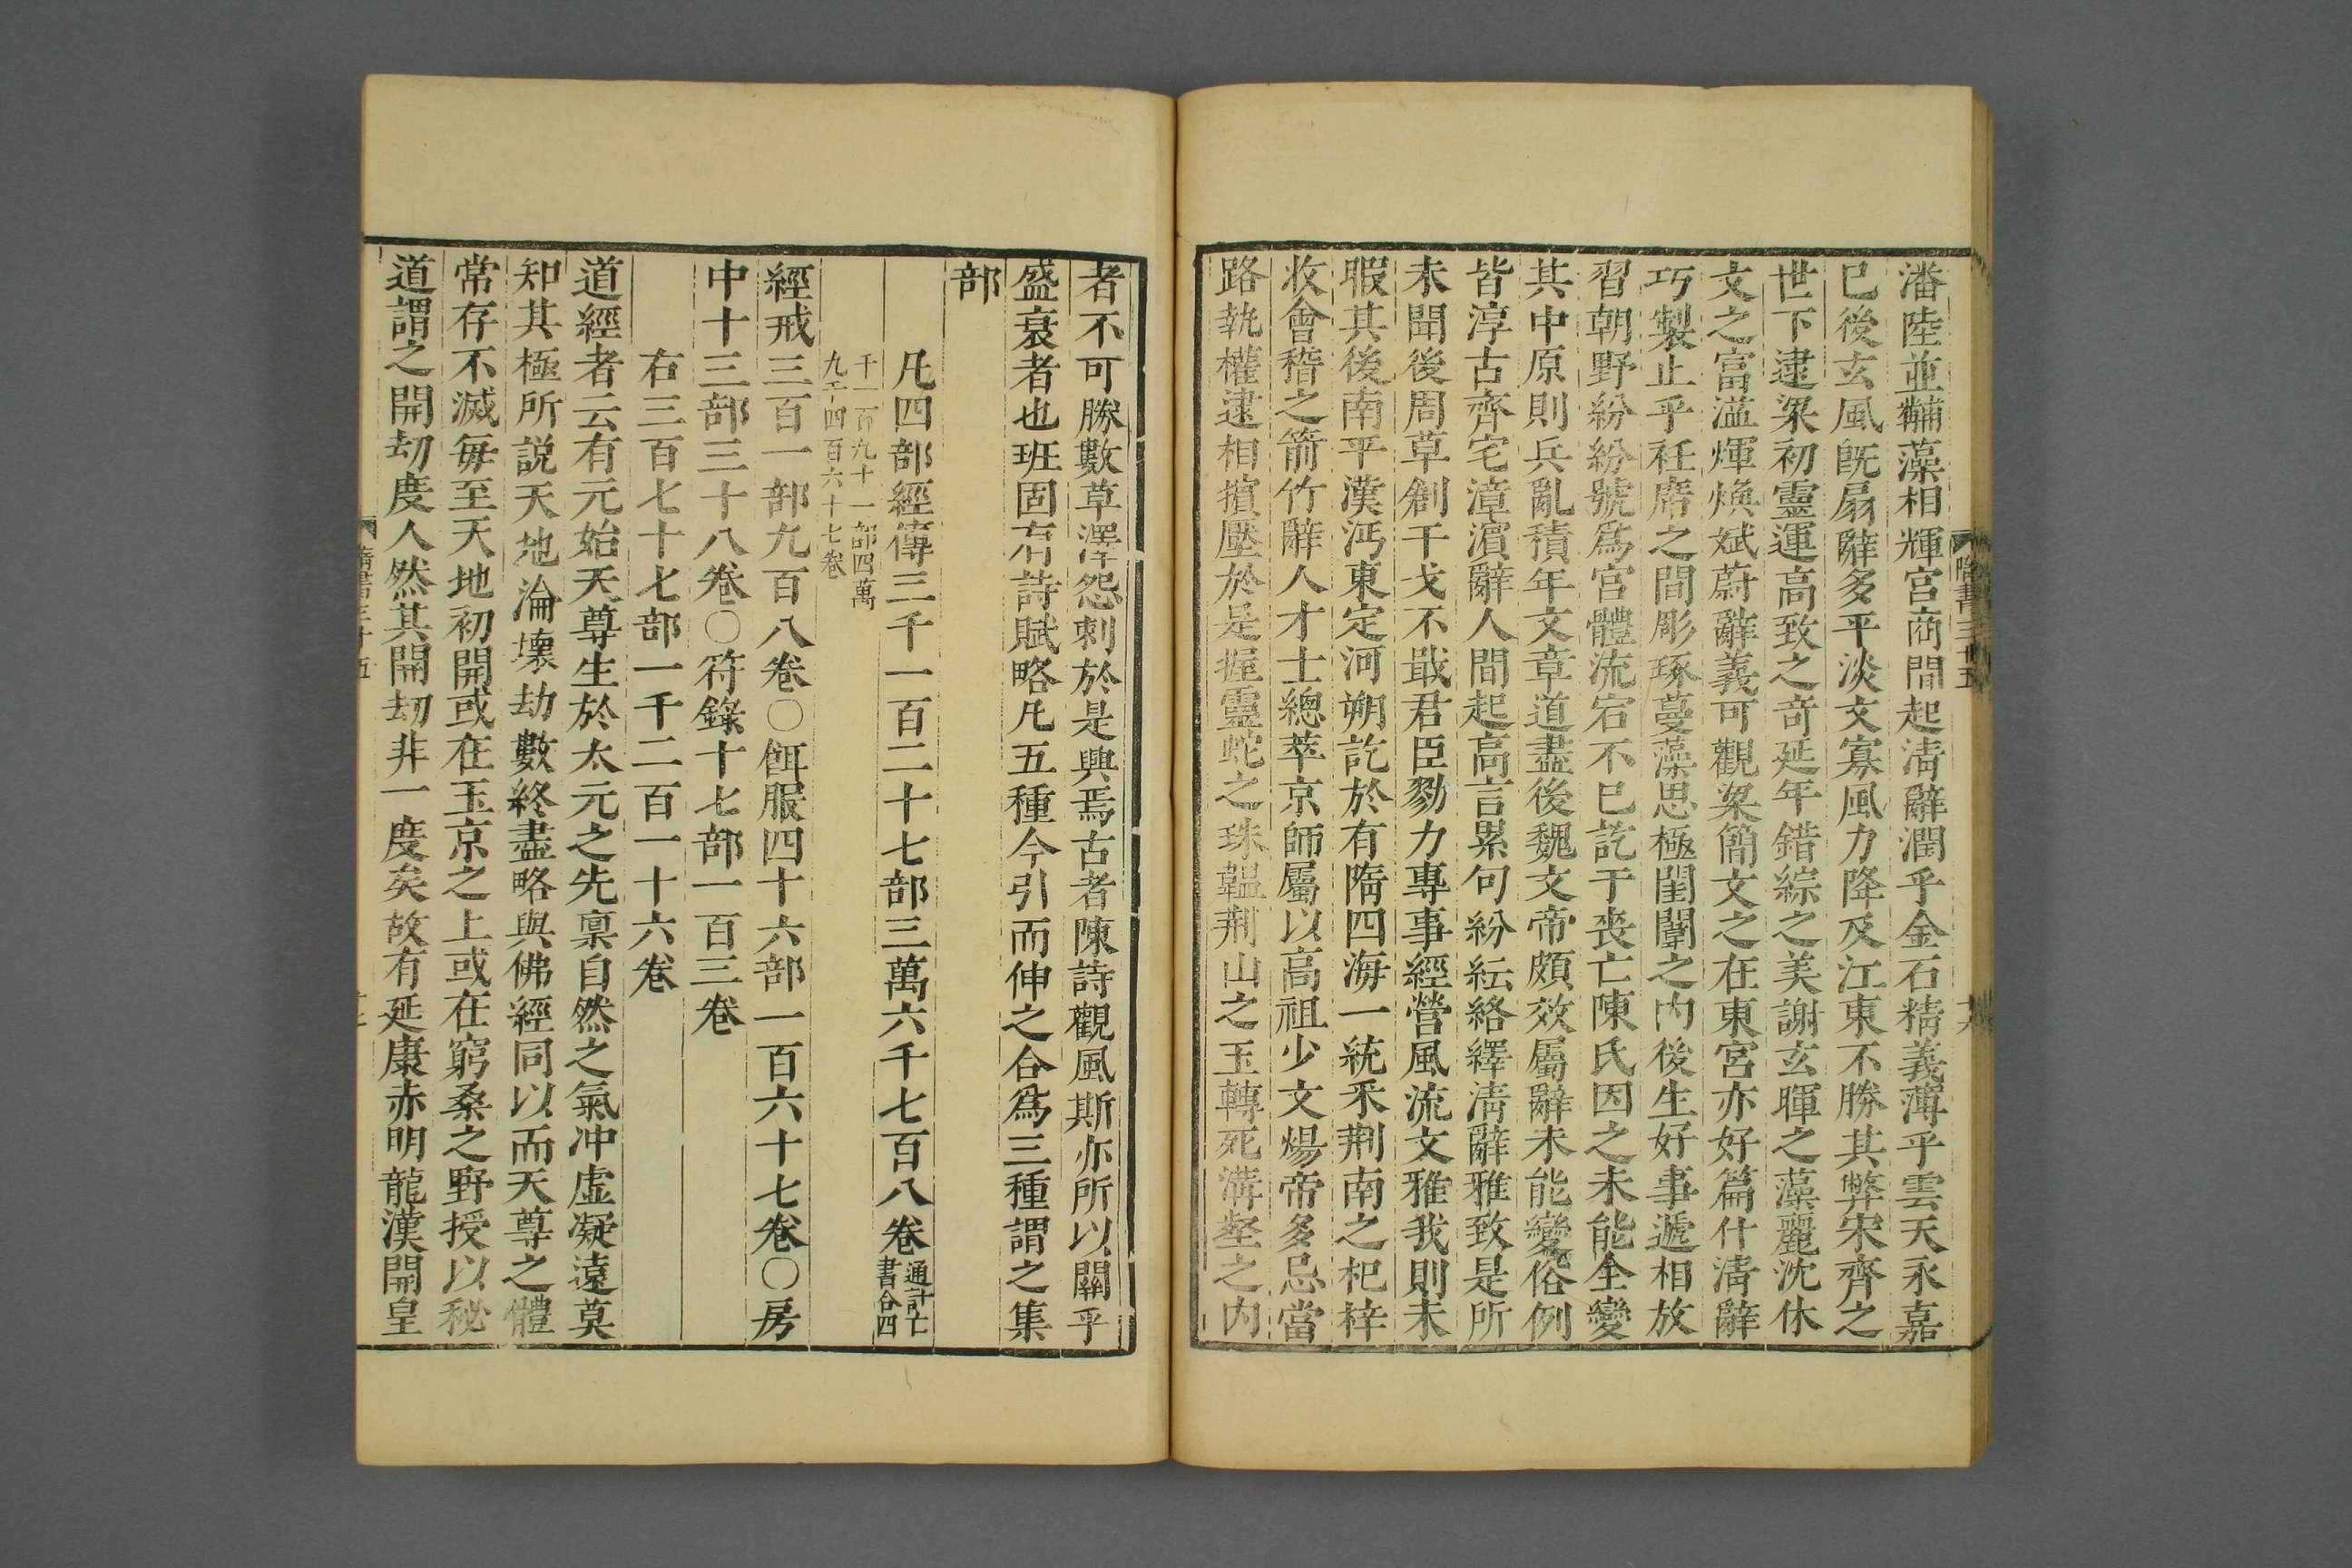 潘陸並黼藻相輝宮商間起清辭潤乎金石精義薄乎雲天永嘉
已後玄風旣扇辭多平淡文寡風力降及江東不勝其弊宋齊之
世下逮梁初靈運高致之竒延年錯綜之美謝玄暉之藻麗沈休
文之富溢煇煥斌蔚辭義可觀梁簡文之在東宮亦好篇什清辭
巧製止乎衽席之間彫琢蔓藻思極閨闈之内後生好事遞相放
習朝野紛紛號爲宮體流宕不已訖于喪亡陳氏因之未能全變
其中原則兵亂積年文章道盡後魏文帝頗效屬辭未能變俗例
皆淳古齊宅漳濱辭人間起高言累句紛紜絡繹清辭雅致是所
未聞後周草創干戈不戢君臣勠力專事經營風流文雅我則未
暇其後南平漢沔東定河朔訖於有隋四海一統采荆南之杞梓
收會稽之箭竹辭人才士總萃京師屬以高祖少文煬帝多忌當
路執權逮相擯壓於是握靈蛇之珠韞荆山之玉轉死溝壑之内
者不可勝數草澤怨刺於是興焉古者陳詩觀風斯亦所以關乎
盛衰者也班固有詩賦略凡五種今引而伸之合爲三種謂之集
部
凡四部經傳三千一百二十七部三萬六千七百八卷通計亡書合四
千一百九十一部四萬九千四百六十七卷
經戒三百一部九百八卷○餌服四十六部一百六十七卷○房
中十三部三十八卷○符錄十七部一百三卷
右三百七十七部一千二百一十六卷
道經者云有元始天尊生於太元之先稟自然之氣冲虛凝遠莫
知其極所説天地淪壞劫數終盡略與佛經同以而天尊之體
常存不滅每至天地初開或在玉京之上或在窮桑之野授以秘
道謂之開劫度人然其開劫非一度矣故有延康赤明龍漢開皇
隋書三十五